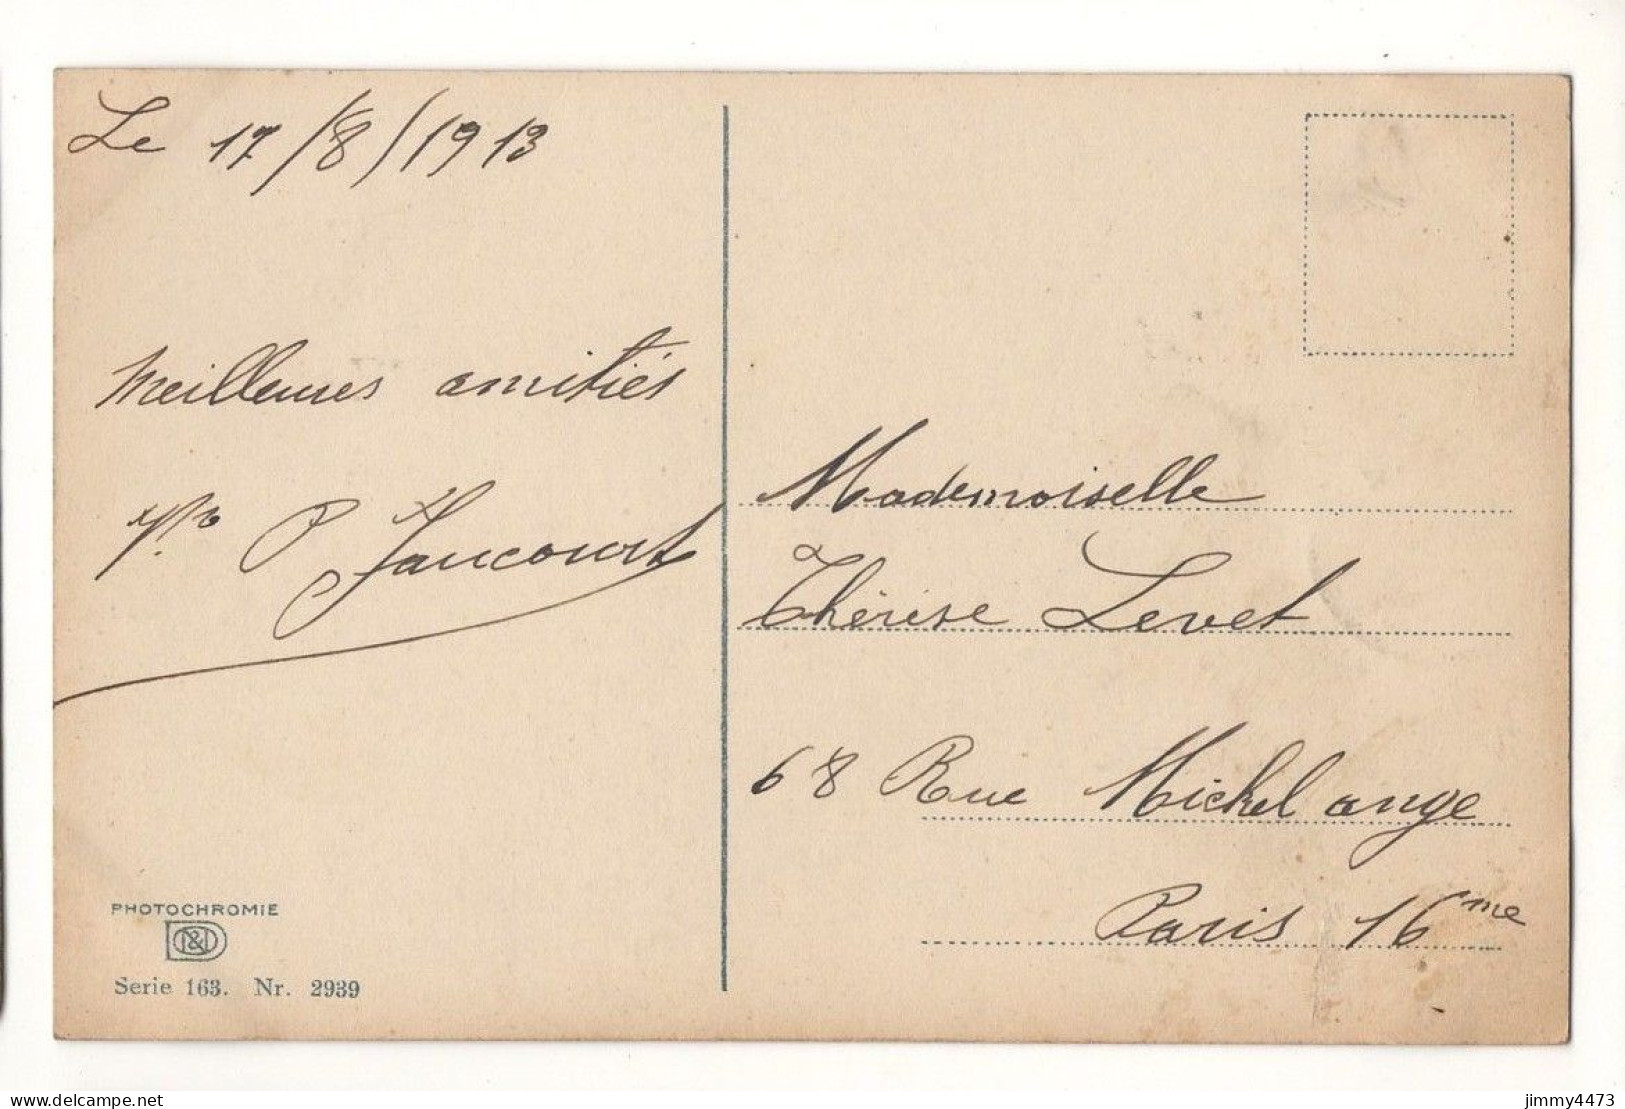 Le 17/8/1913
Meilleures amitiés
P Jaucourt
Mademoiselle
Thérèse Levet
68 Rue Michel ange
Paris 16me
PHOTOCHROMIE
Serie 163. Nr. 2939
www.delcampe.net
jimmy4473